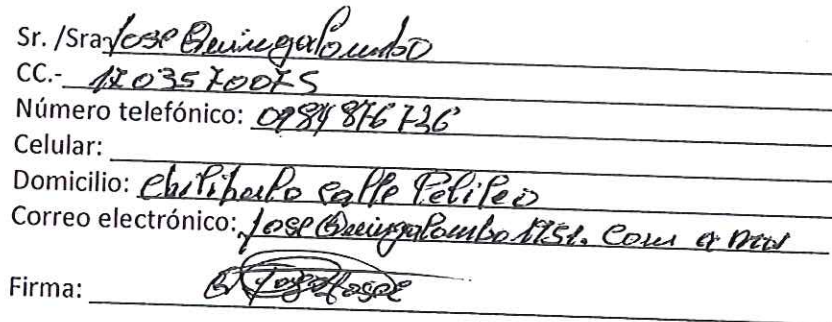 Sr. /Sra. Jose Quingalombo
CC.- 1703570075
Número telefónico: 0984876736
Celular:
Domicilio: Chilibulo calle Pelileo
Correo electrónico: Jose Quingalombo 1751. Com
Firma: